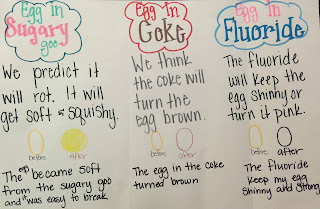 Egg In
Sugary
goo
We predict it
will rot. It will
get soft & squishy.
before
after
The egg became soft
from the sugary goo
and it was easy to break.
Egg In
Coke
We think
the coke will
turn the
egg brown.
before
after
The egg in the coke
turned brown
Egg In
Fluoride
The fluoride
will keep the
egg shinny or
turn it pink.
before
after
The fluoride
keep my egg
Shinny and Strong